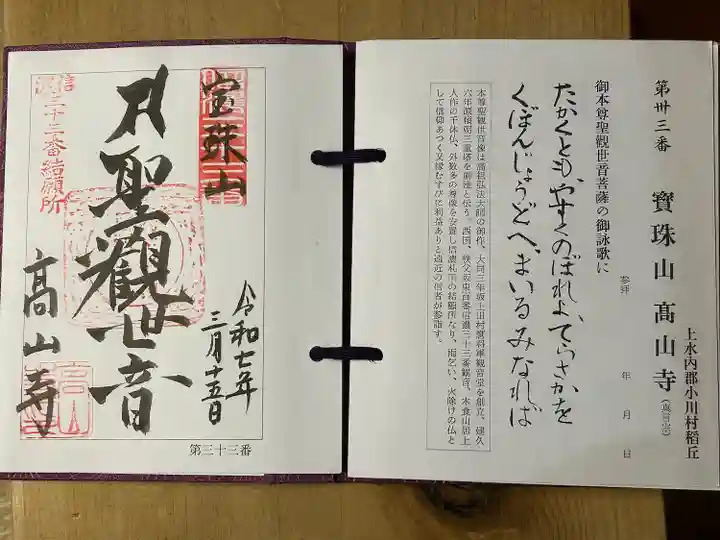 第卅三番
寳珠山 髙山寺(真言宗)
上水內郡小川村稻丘
御本尊聖觀世音菩薩の御詠歌に
参拝 年 月 日
たかくとも、やすくのぼれよ、てらさかを
くぼんじょうどへ、まいるみなれば
本尊聖観世音像は高祖弘法大師の御作、大同三年坂上田村麿将軍観音堂を創立、建久
六年源頼朝三重塔を創建と伝う。西国、秩父坂東百番信濃三十三番観音、木食山居上
人作の千体仏、外数多の尊像を安置し信濃札所の結願所なり、雨乞い、火除けの仏と
して信仰あつく又縁むすびに利益ありと遠近の信者が参詣す。
宝珠山
令和七年
三月十五日
聖觀世音
三十三番結願所
髙山寺
第三十三番